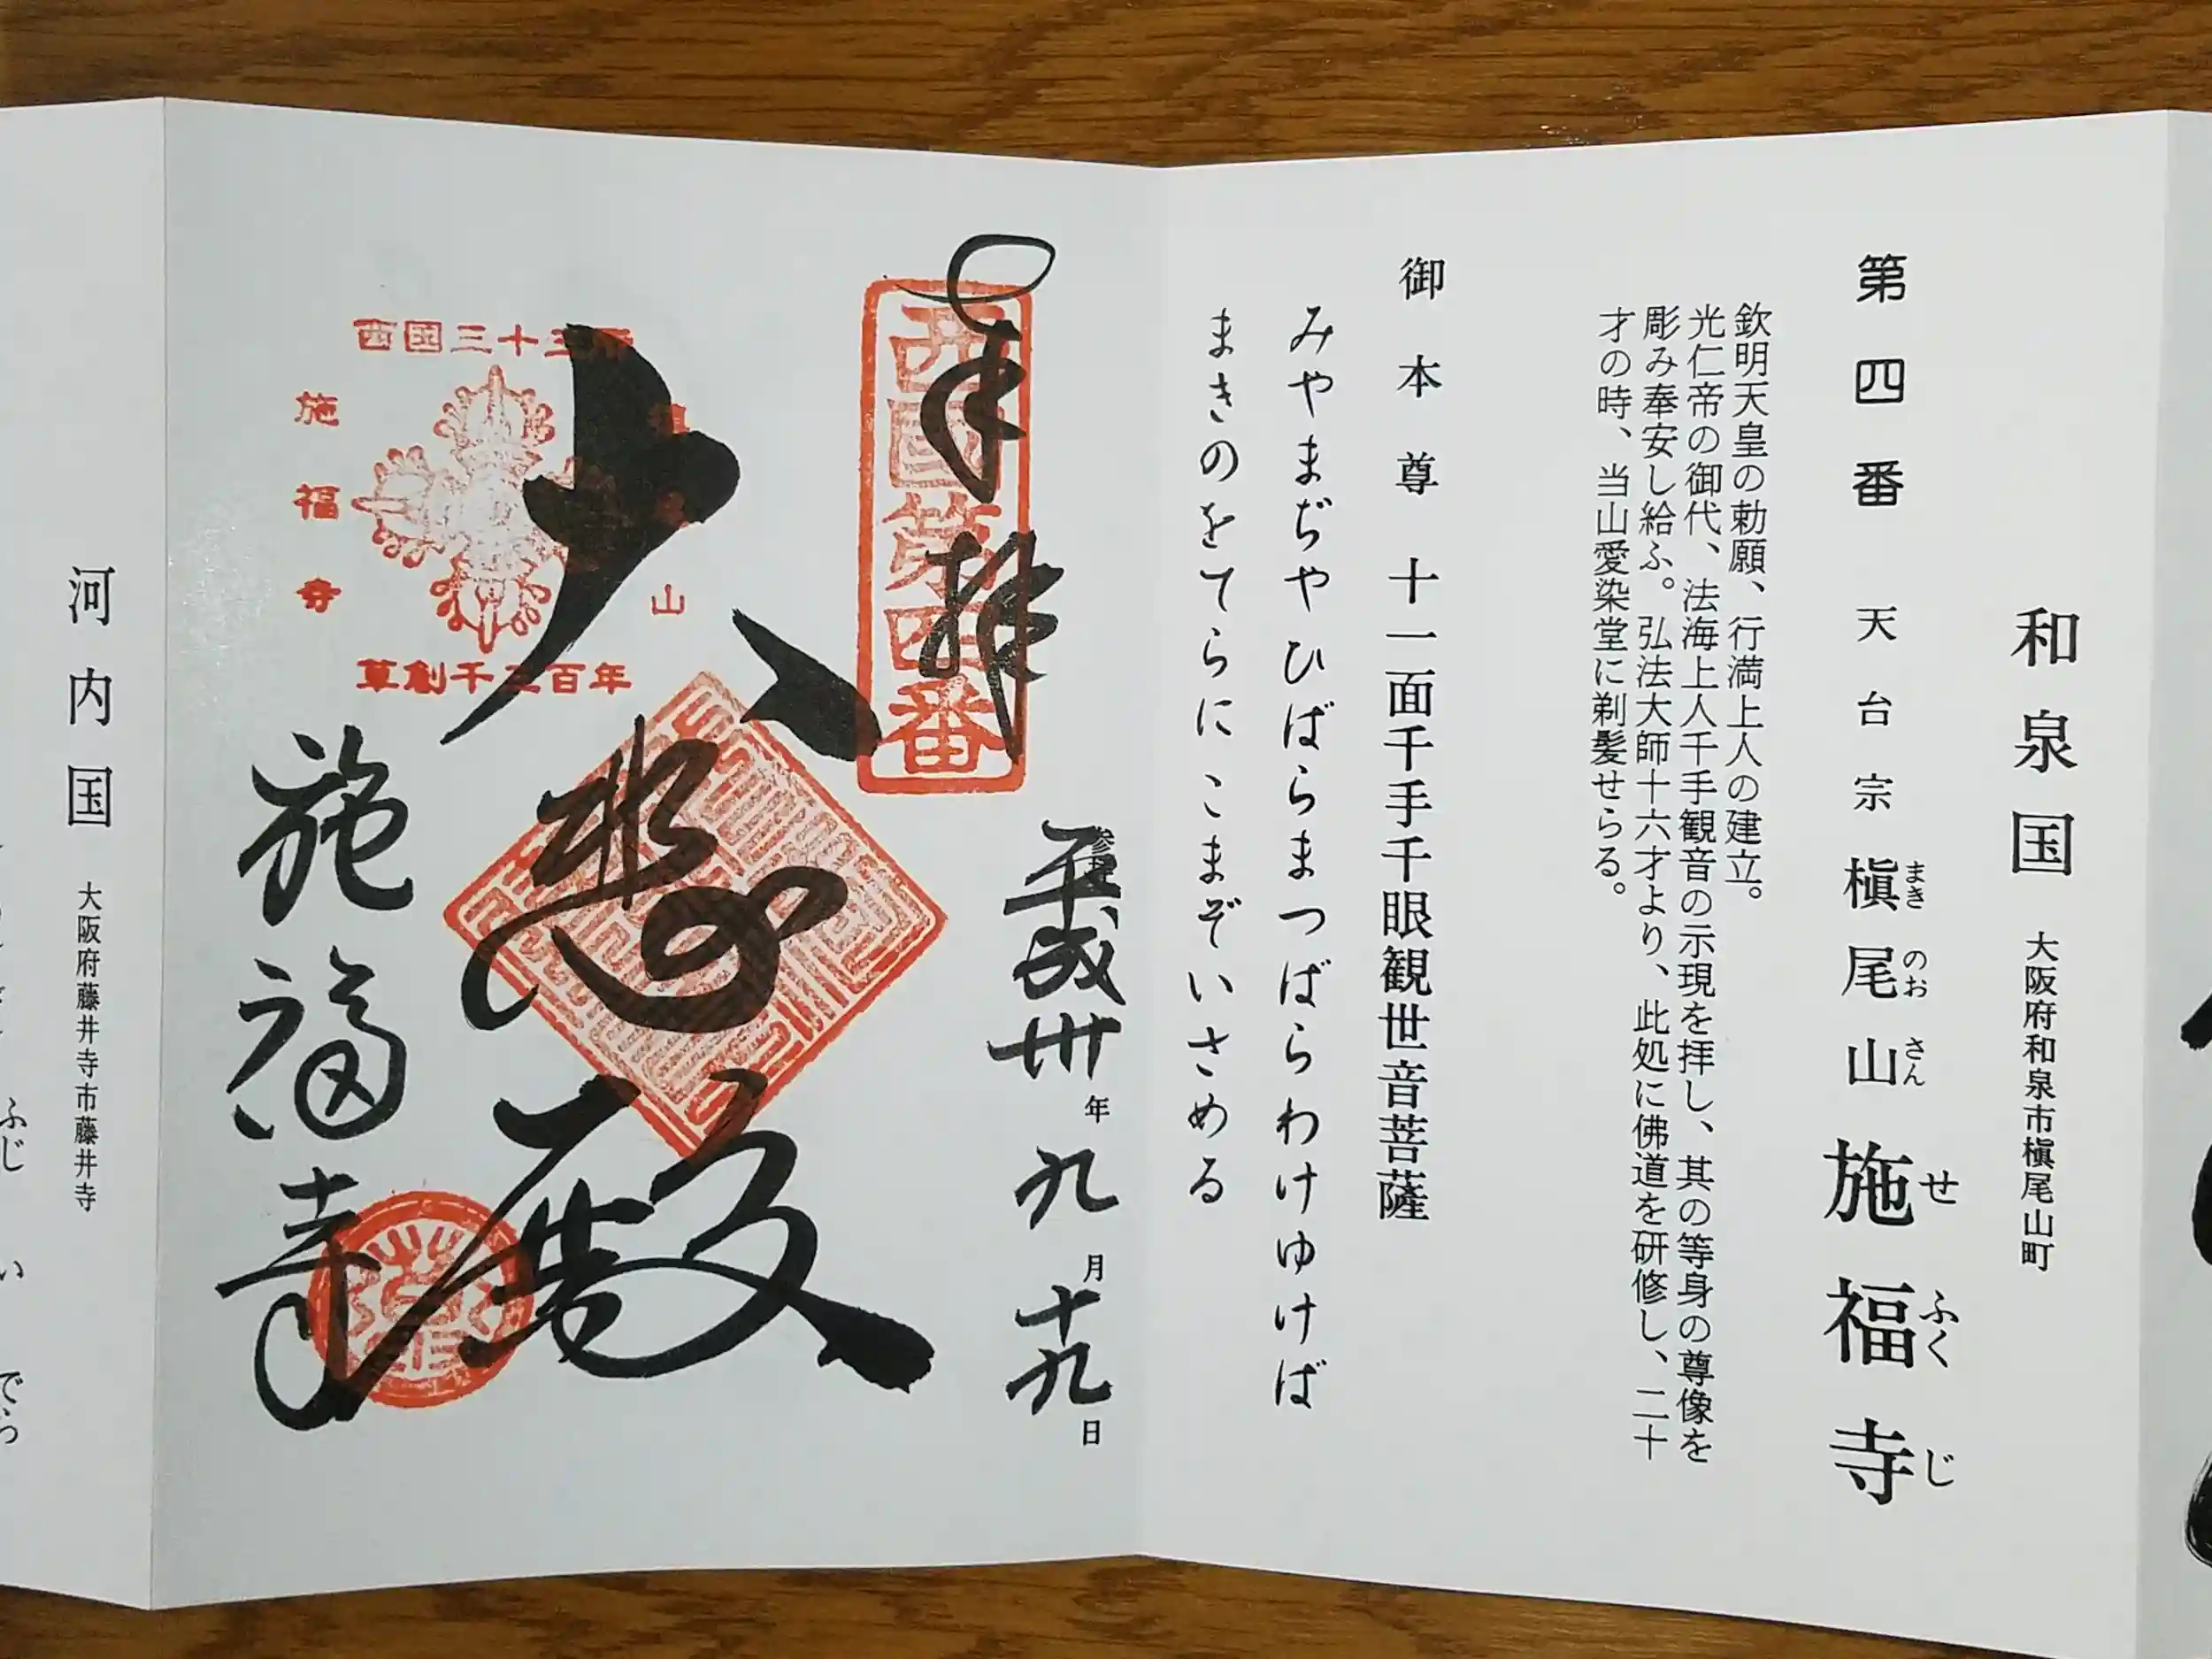 和泉国 大阪府和泉市槇尾山町
第四番 天台宗 槇尾山 施福寺
まきのおさん せふくじ
欽明天皇の勅願、行満上人の建立。
光仁帝の御代、法海上人千手観音の示現を拝し、其の等身の尊像を
彫み奉安し給ふ。弘法大師十六才より、此処に佛道を研修し、二十
才の時、当山愛染堂に剃髪せらる。
御本尊 十一面千手千眼観世音菩薩
みやまぢや ひばらまつばらわけゆけば
まきのをてらに こまぞいさめる
奉拝
西国第四番
平成卅年九月十九日
大悲殿
西国三十三所
山
施福寺
草創千三百年
施福寺
河内国 大阪府藤井寺市藤井寺